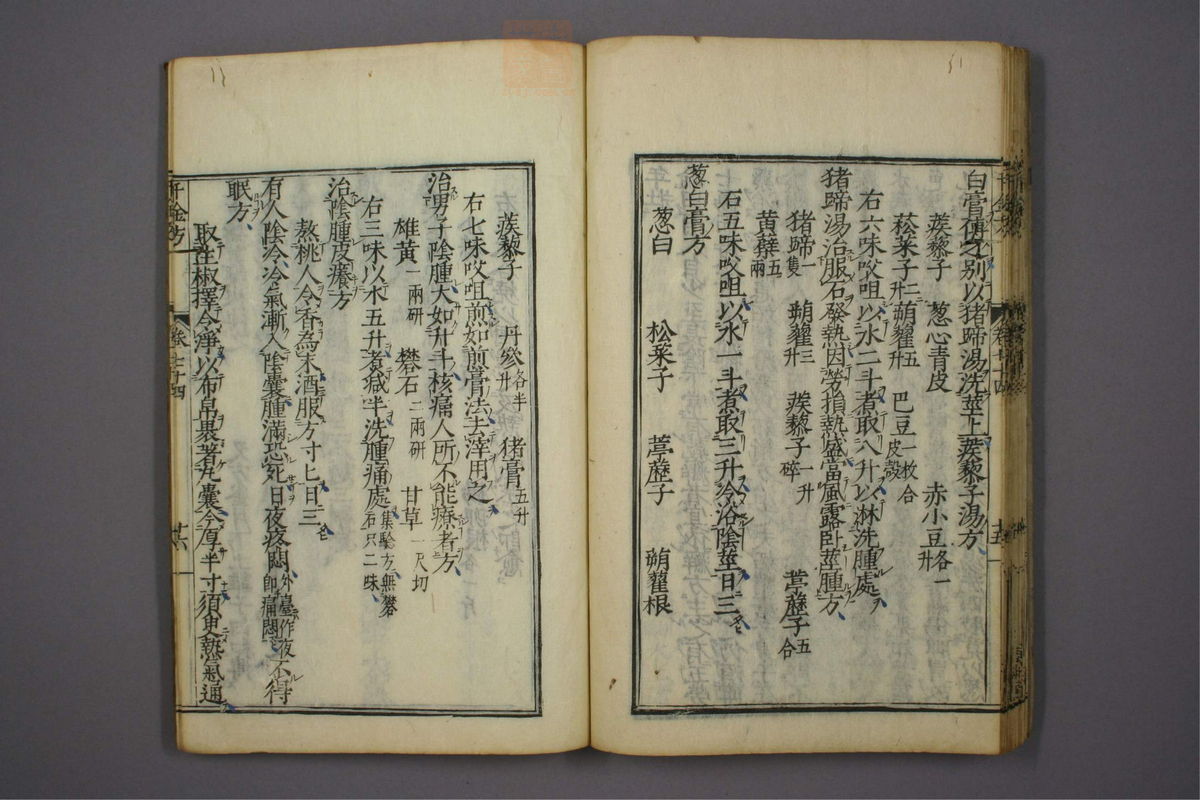 白膏傅之別以猪蹄湯洗莖上蒺藜子湯方
蒺藜子 葱心青皮 赤小豆各一升
菘菜子二升 蒴藋五升 巴豆一枚合皮殻
右六味㕮咀以水二斗煮取八升以淋洗腫處
猪蹄湯治服石發熱因勞損熱盛當風露卧莖腫方
猪蹄一隻 蒴藋三升 蒺藜子一升碎 葶藶子五合
黄蘗五兩
右五味㕮咀以水一斗煮取三升冷浴陰莖日三
葱白膏方
葱白 菘菜子 葶藶子 蒴藋根
卷二十四
蒺藜子 丹參各半升 猪膏五升
右七味㕮咀煎如前膏法去滓用之
治男子陰腫大如升斗核痛人所不能療者方
雄黄一兩研 礬石二兩研 甘草一尺切
右三味以水五升煮減半洗腫痛處集驗方無礬石只二味
治陰腫皮癢方
熬桃人令香為末酒服方寸匕日三
有人陰冷冷氣漸入陰囊腫滿恐死日夜疼悶外臺作夜即痛悶不得
眠方
取生椒擇令淨以布帛裹著丸囊令厚半寸須臾熱氣通
千金方 卷二十四 廿六